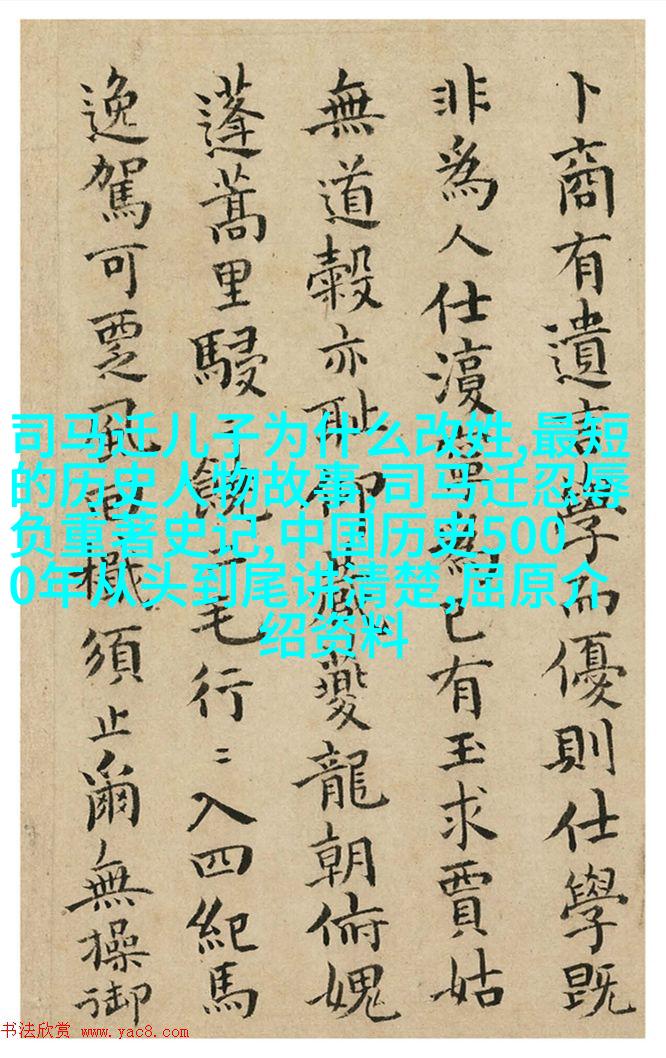 卜商有遺言學而優則仕學既
非為人仕當為己有玉求賈姑
無道穀亦耻仰慙夔龍朝俯媿
蓬蒿里駸〻饒二毛行〻入四紀馬
逸駕可覂風檝須止爾無操御
司马迁儿子为什么改姓,最短
的历史人物故事,司马迁忍辱
负重著史记,中国历史500
0年从头到尾讲清楚,屈原介
绍资料
书法欣赏 www.yac8.com